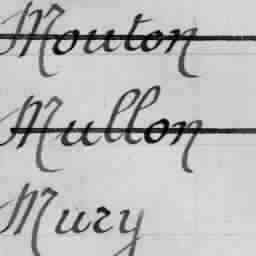 Mouton
Mullon
Mury